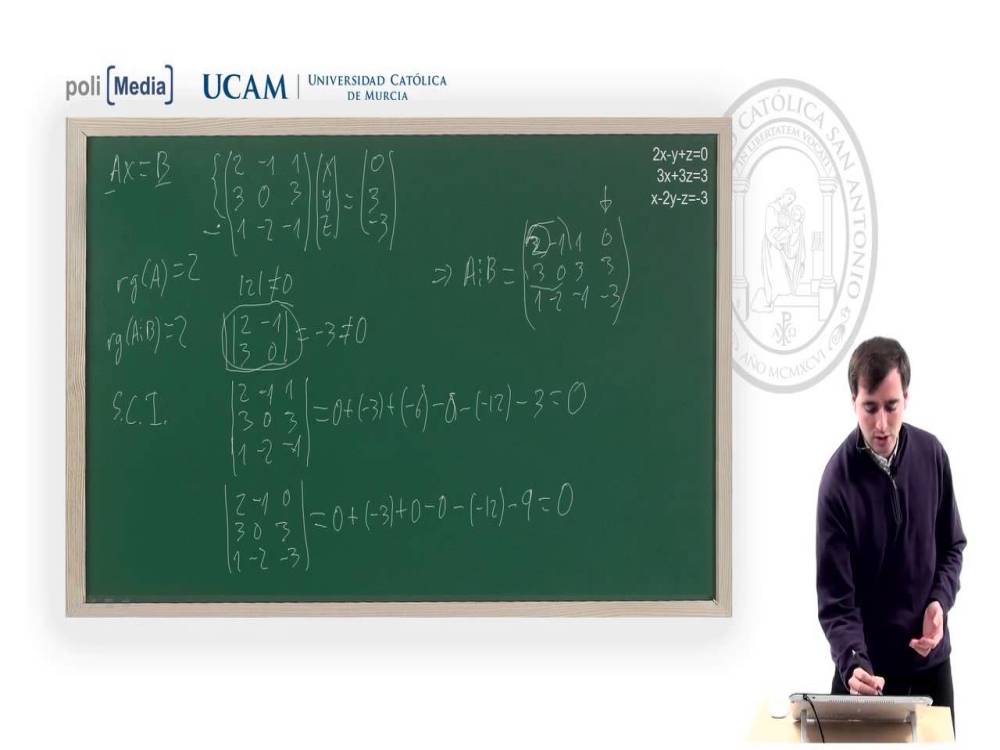 poli [Media] UCAM | UNIVERSIDAD CATÓLICA
DE MURCIA
CATÓLICA SAN ANTONIO
IN LIBERTATEM VOCATI
AÑO MCMXCVI
2x-y+z=0
3x+3z=3
x-2y-z=-3
Ax=B
2 -1 1 x 0
3 0 3 y = 3
1 -2 -1 z -3
rg(A)=2
|2|≠0
⇒ A¦B =
2 -1 1 0
3 0 3 3
1 -2 -1 -3
rg(A¦B)=2
2 -1
3 0
= -3≠0
S.C.I.
2 -1 1
3 0 3
1 -2 -1
=0+(-3)+(-6)-0-(-12)-3=0
2 -1 0
3 0 3
1 -2 -3
=0+(-3)+0-0-(-12)-9=0